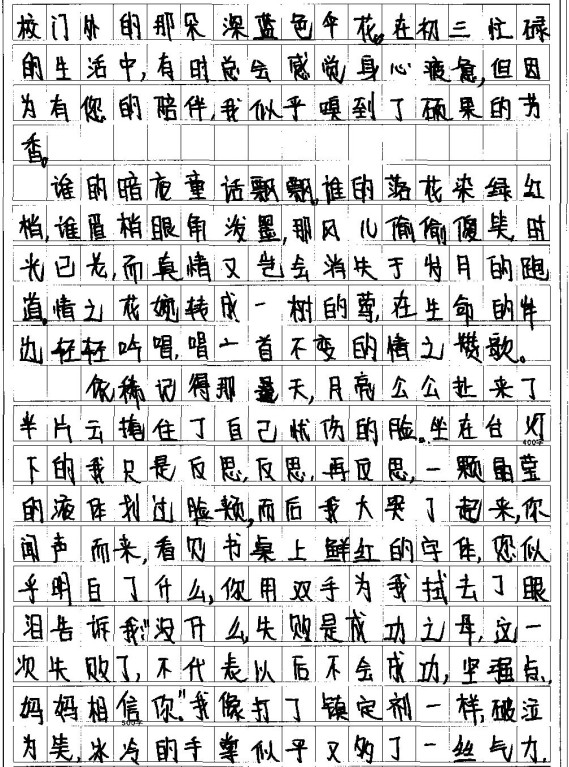 校门外的那朵深蓝色伞花。在初三忙碌
的生活中,有时总会感觉身心疲惫,但因
为有您的陪伴,我似乎嗅到了硕果的芳
香。
谁的暗夜童话飘飘。谁的落花染绿红
梢,谁眉梢眼角泼墨,那风儿偷偷傻笑。时
光已老,而真情又岂会消失于岁月的跑
道。情之花婉转成一树的尊,在生命的岸
边轻轻吟唱,唱一首不变的情之赞歌。
依稀记得那是天,月亮公公扯来了
半片云掩住了自己忧伤的脸。坐在台灯
400字
下的我只是反思,反思,再反思,一颗晶莹
的液体划过脸颊,而后我大哭了起来,你
闻声而来,看见书桌上鲜红的字体,您似
乎明白了什么,你用双手为我拭去了眼
泪告诉我:"没什么,失败是成功之母,这一
次失败了,不代表以后不会成功,坚强点,
妈妈相信你"我像打了镇定剂一样,破泣
500字
为笑,冰冷的手掌似乎又够了一丝气力,